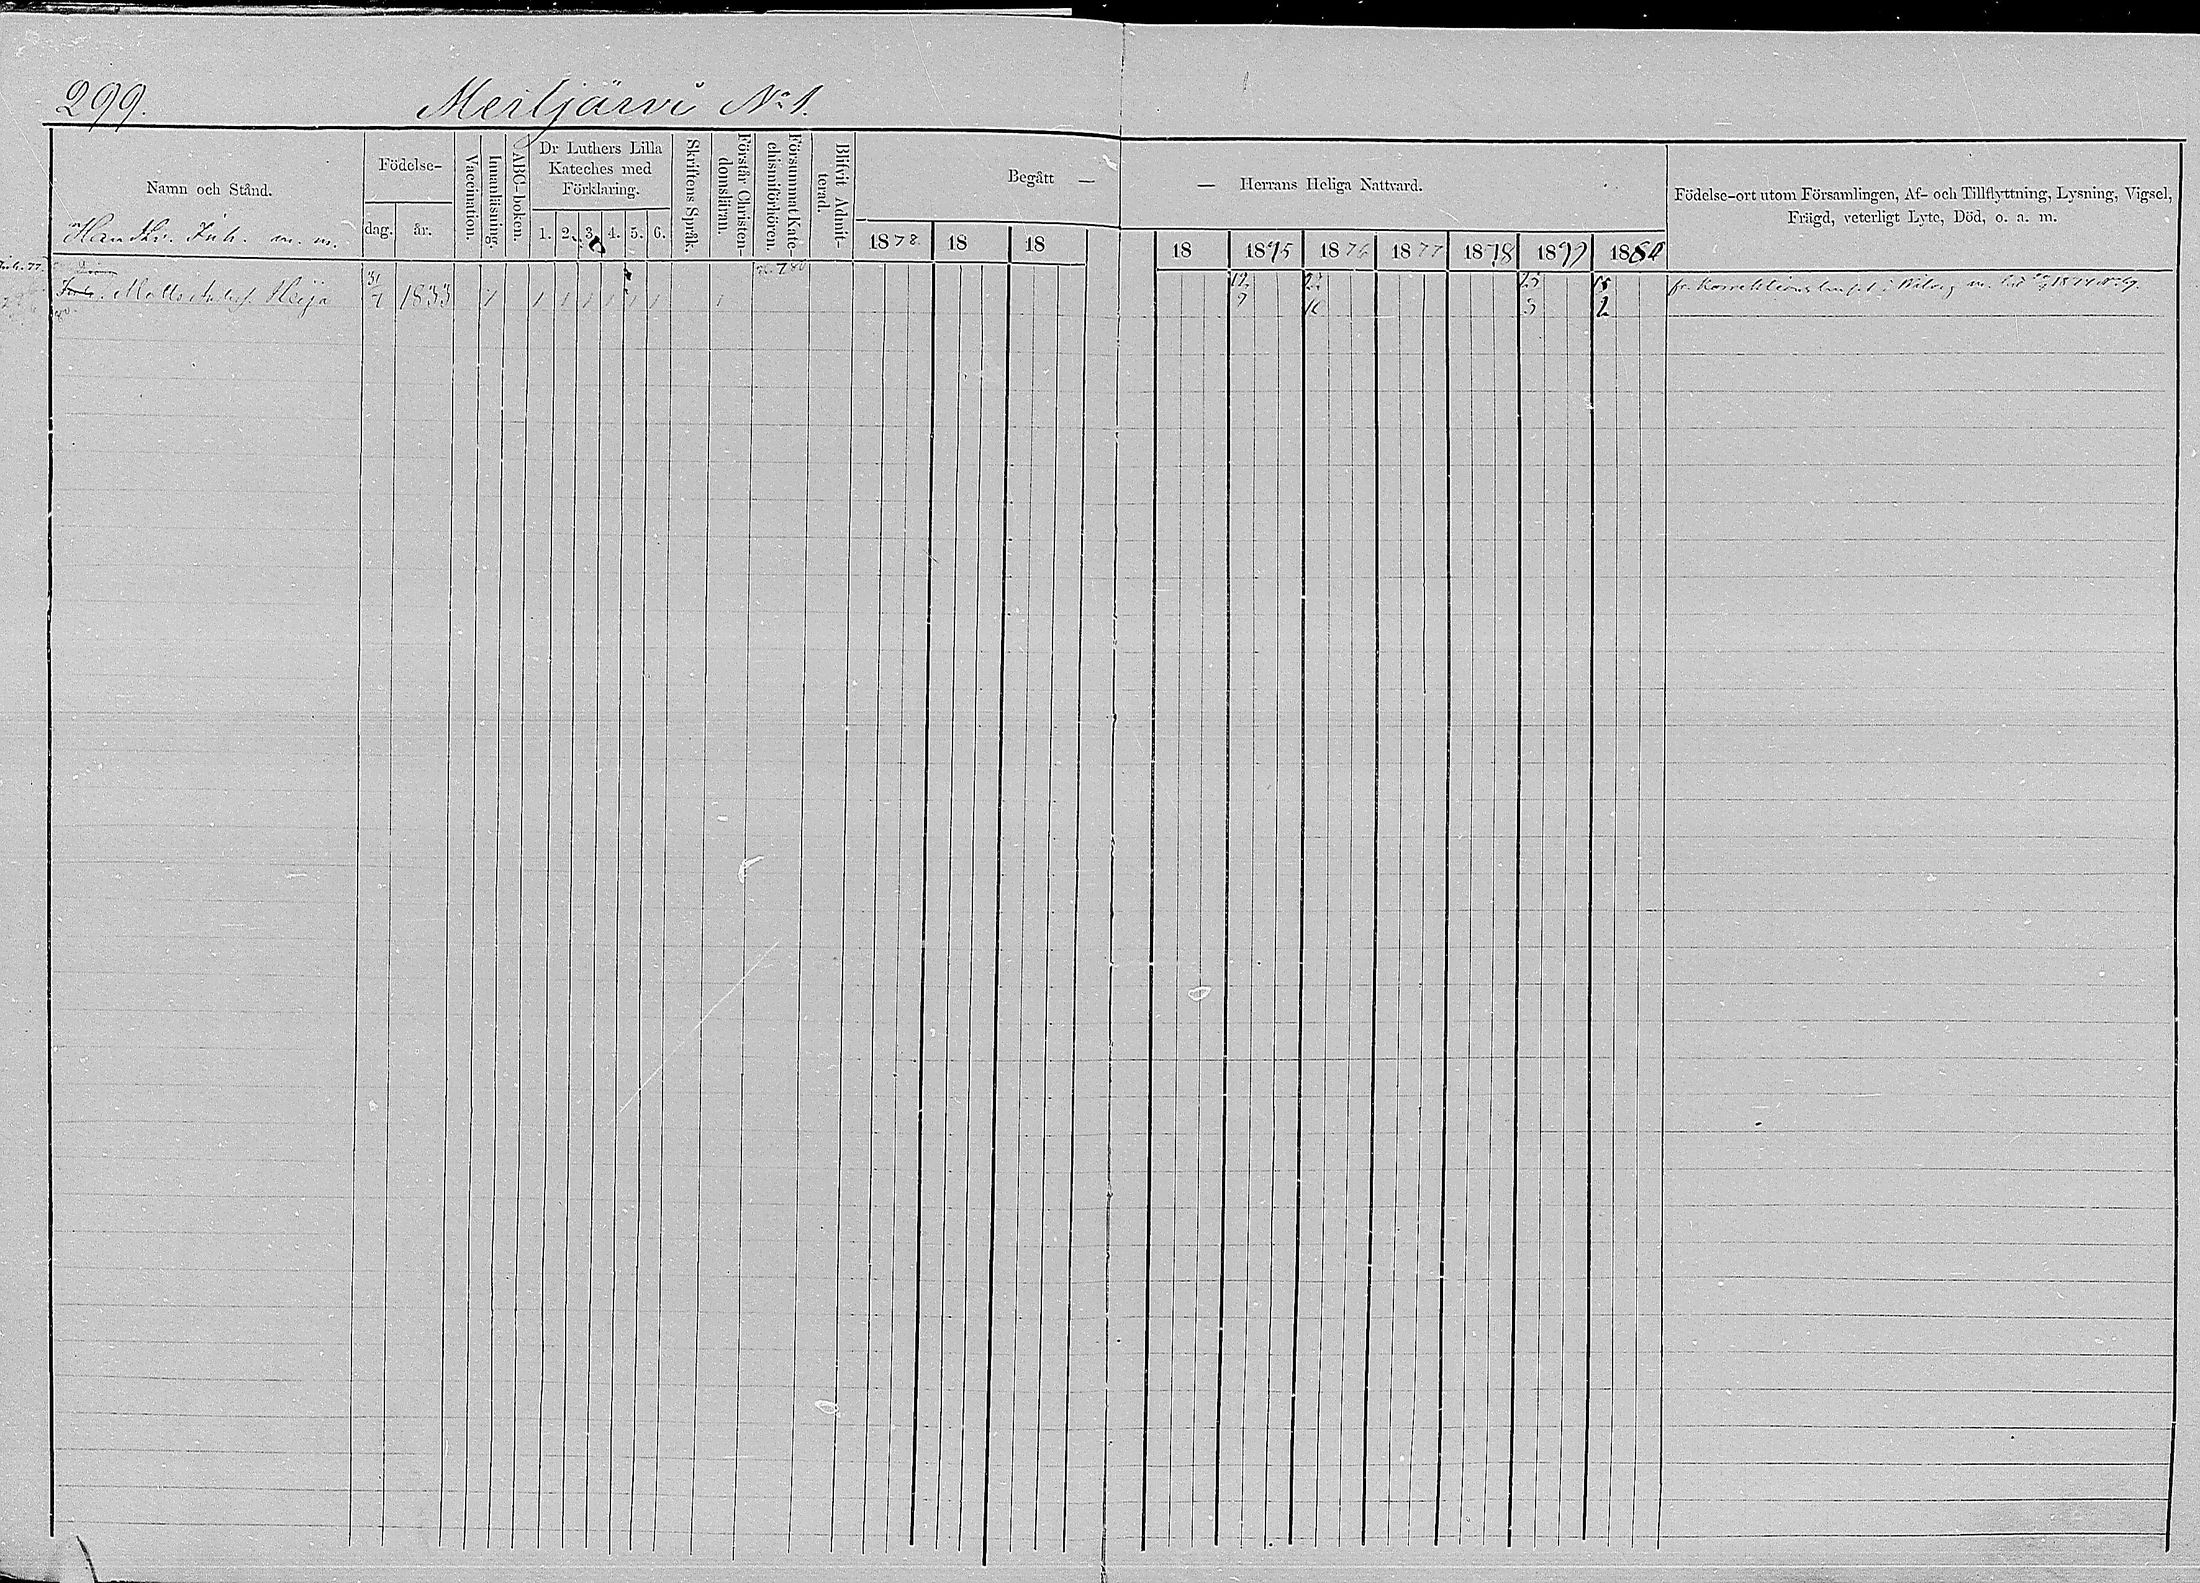 299.
Meiljärvi No 1.
Namn och Stånd.
Födelse-
dag.
år.
Vaccination.
Innanläsning.
ABC-boken.
Dr Luthers Lilla
Kateches med
Förklaring.
1. 2. 3. 4. 5. 6.
Skriftens Språk.
Förstår Christen-
domsläran.
Försummat Kate-
chismiförhören.
Blifvit Admit-
terad.
Begått —
— Herrans Heliga Nattvard.
1878. 18 18
18 1875 1876 1877 1878 1879 1880
Födelse-ort utom Församlingen, Af- och Tillflyttning, Lysning, Vigsel,
Frägd, veterligt Lyte, Död, o. a. m.
Inh. m. m.
Matts Heija 31/7 1833